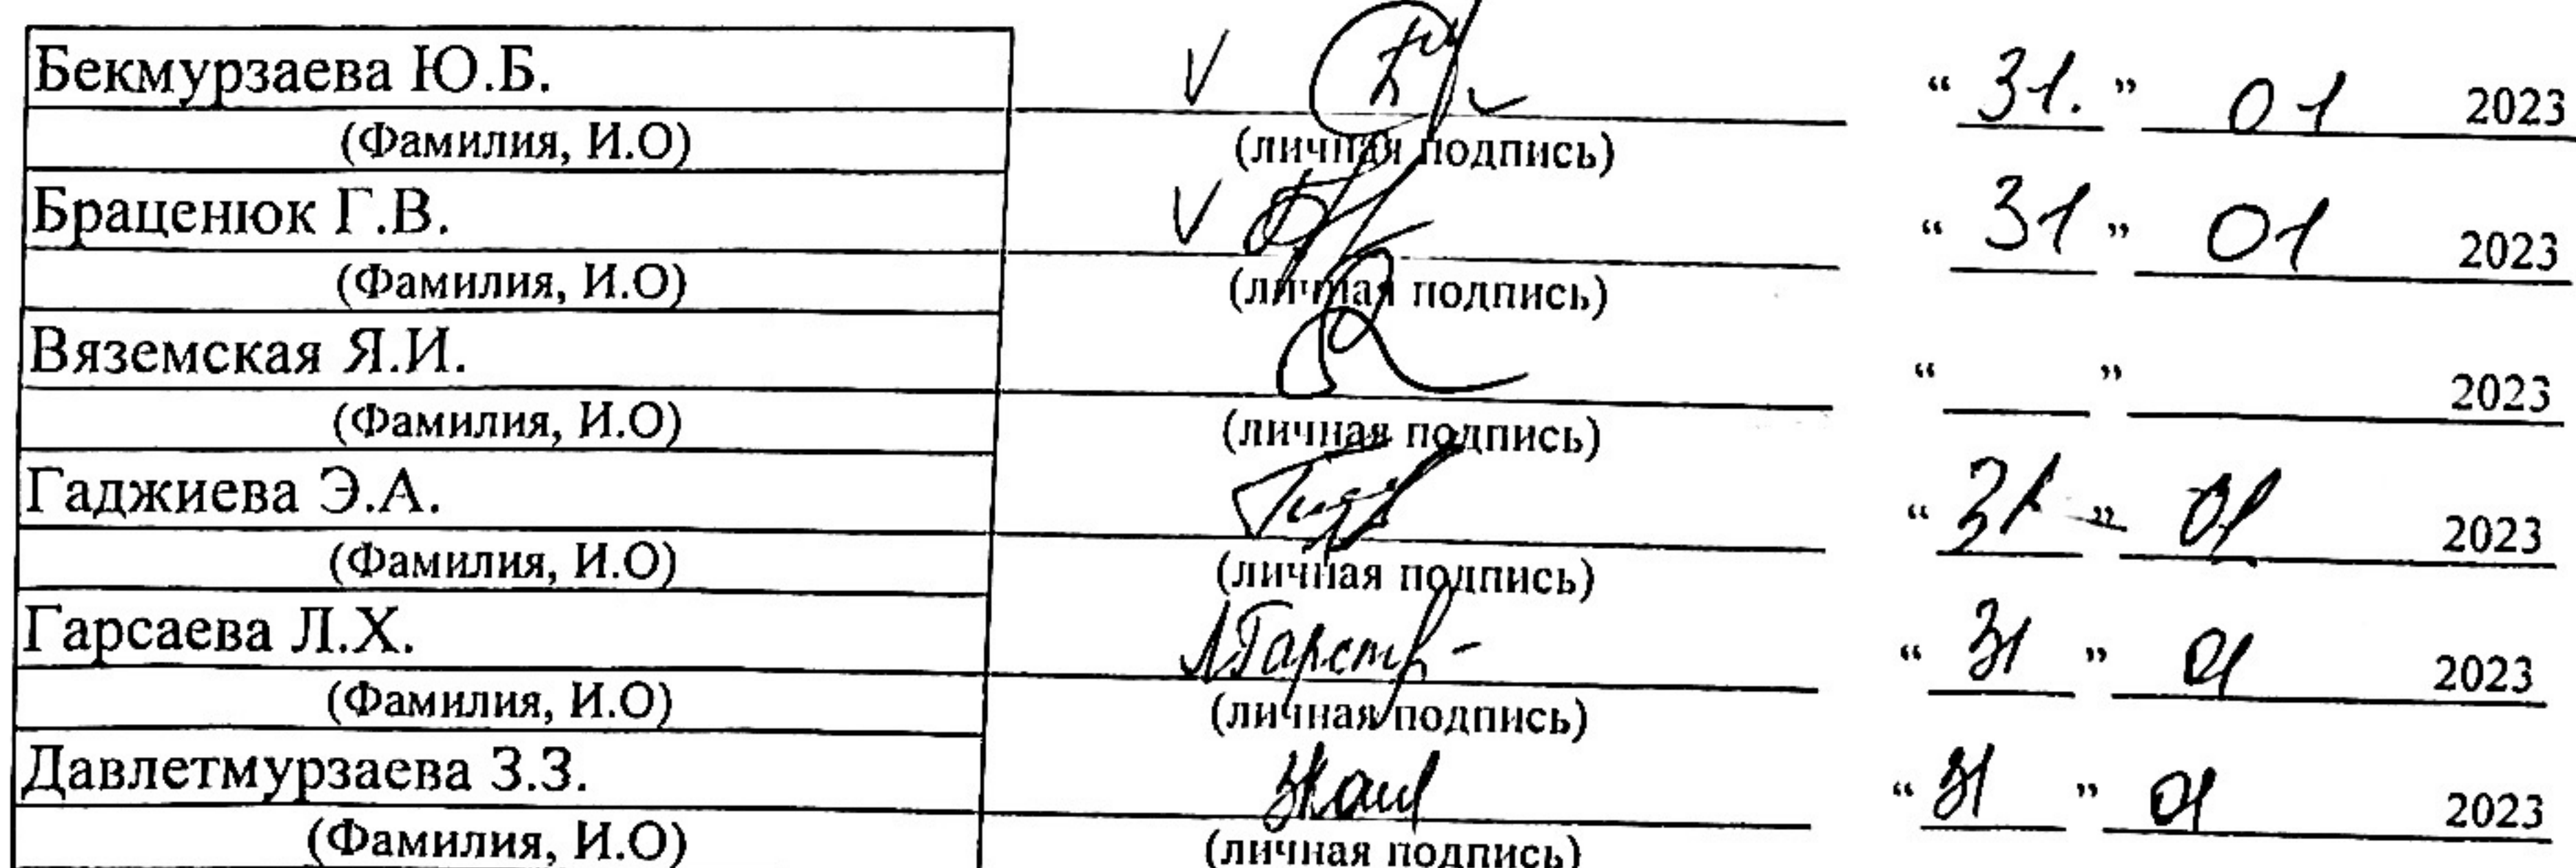 Бекмурзаева Ю.Б. “ 31. ” 01 2023
(Фамилия, И.О) (личная подпись)
Браценюк Г.В. “ 31 ” 01 2023
(Фамилия, И.О) (личная подпись)
Вяземская Я.И. “ ” 2023
(Фамилия, И.О) (личная подпись)
Гаджиева Э.А. “ 31 ” 01 2023
(Фамилия, И.О) (личная подпись)
Гарсаева Л.Х. “ 31 ” 01 2023
(Фамилия, И.О) (личная подпись)
Давлетмурзаева З.З. “ 31 ” 01 2023
(Фамилия, И.О) (личная подпись)